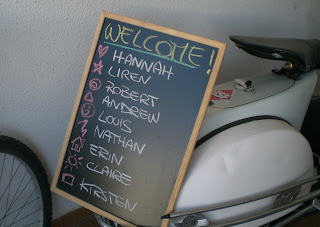 WELCOME!
HANNAH
LIREN
ROBERT
ANDREW
LOUIS
NATHAN
ERIN
CLAIRE
KIRSTEN